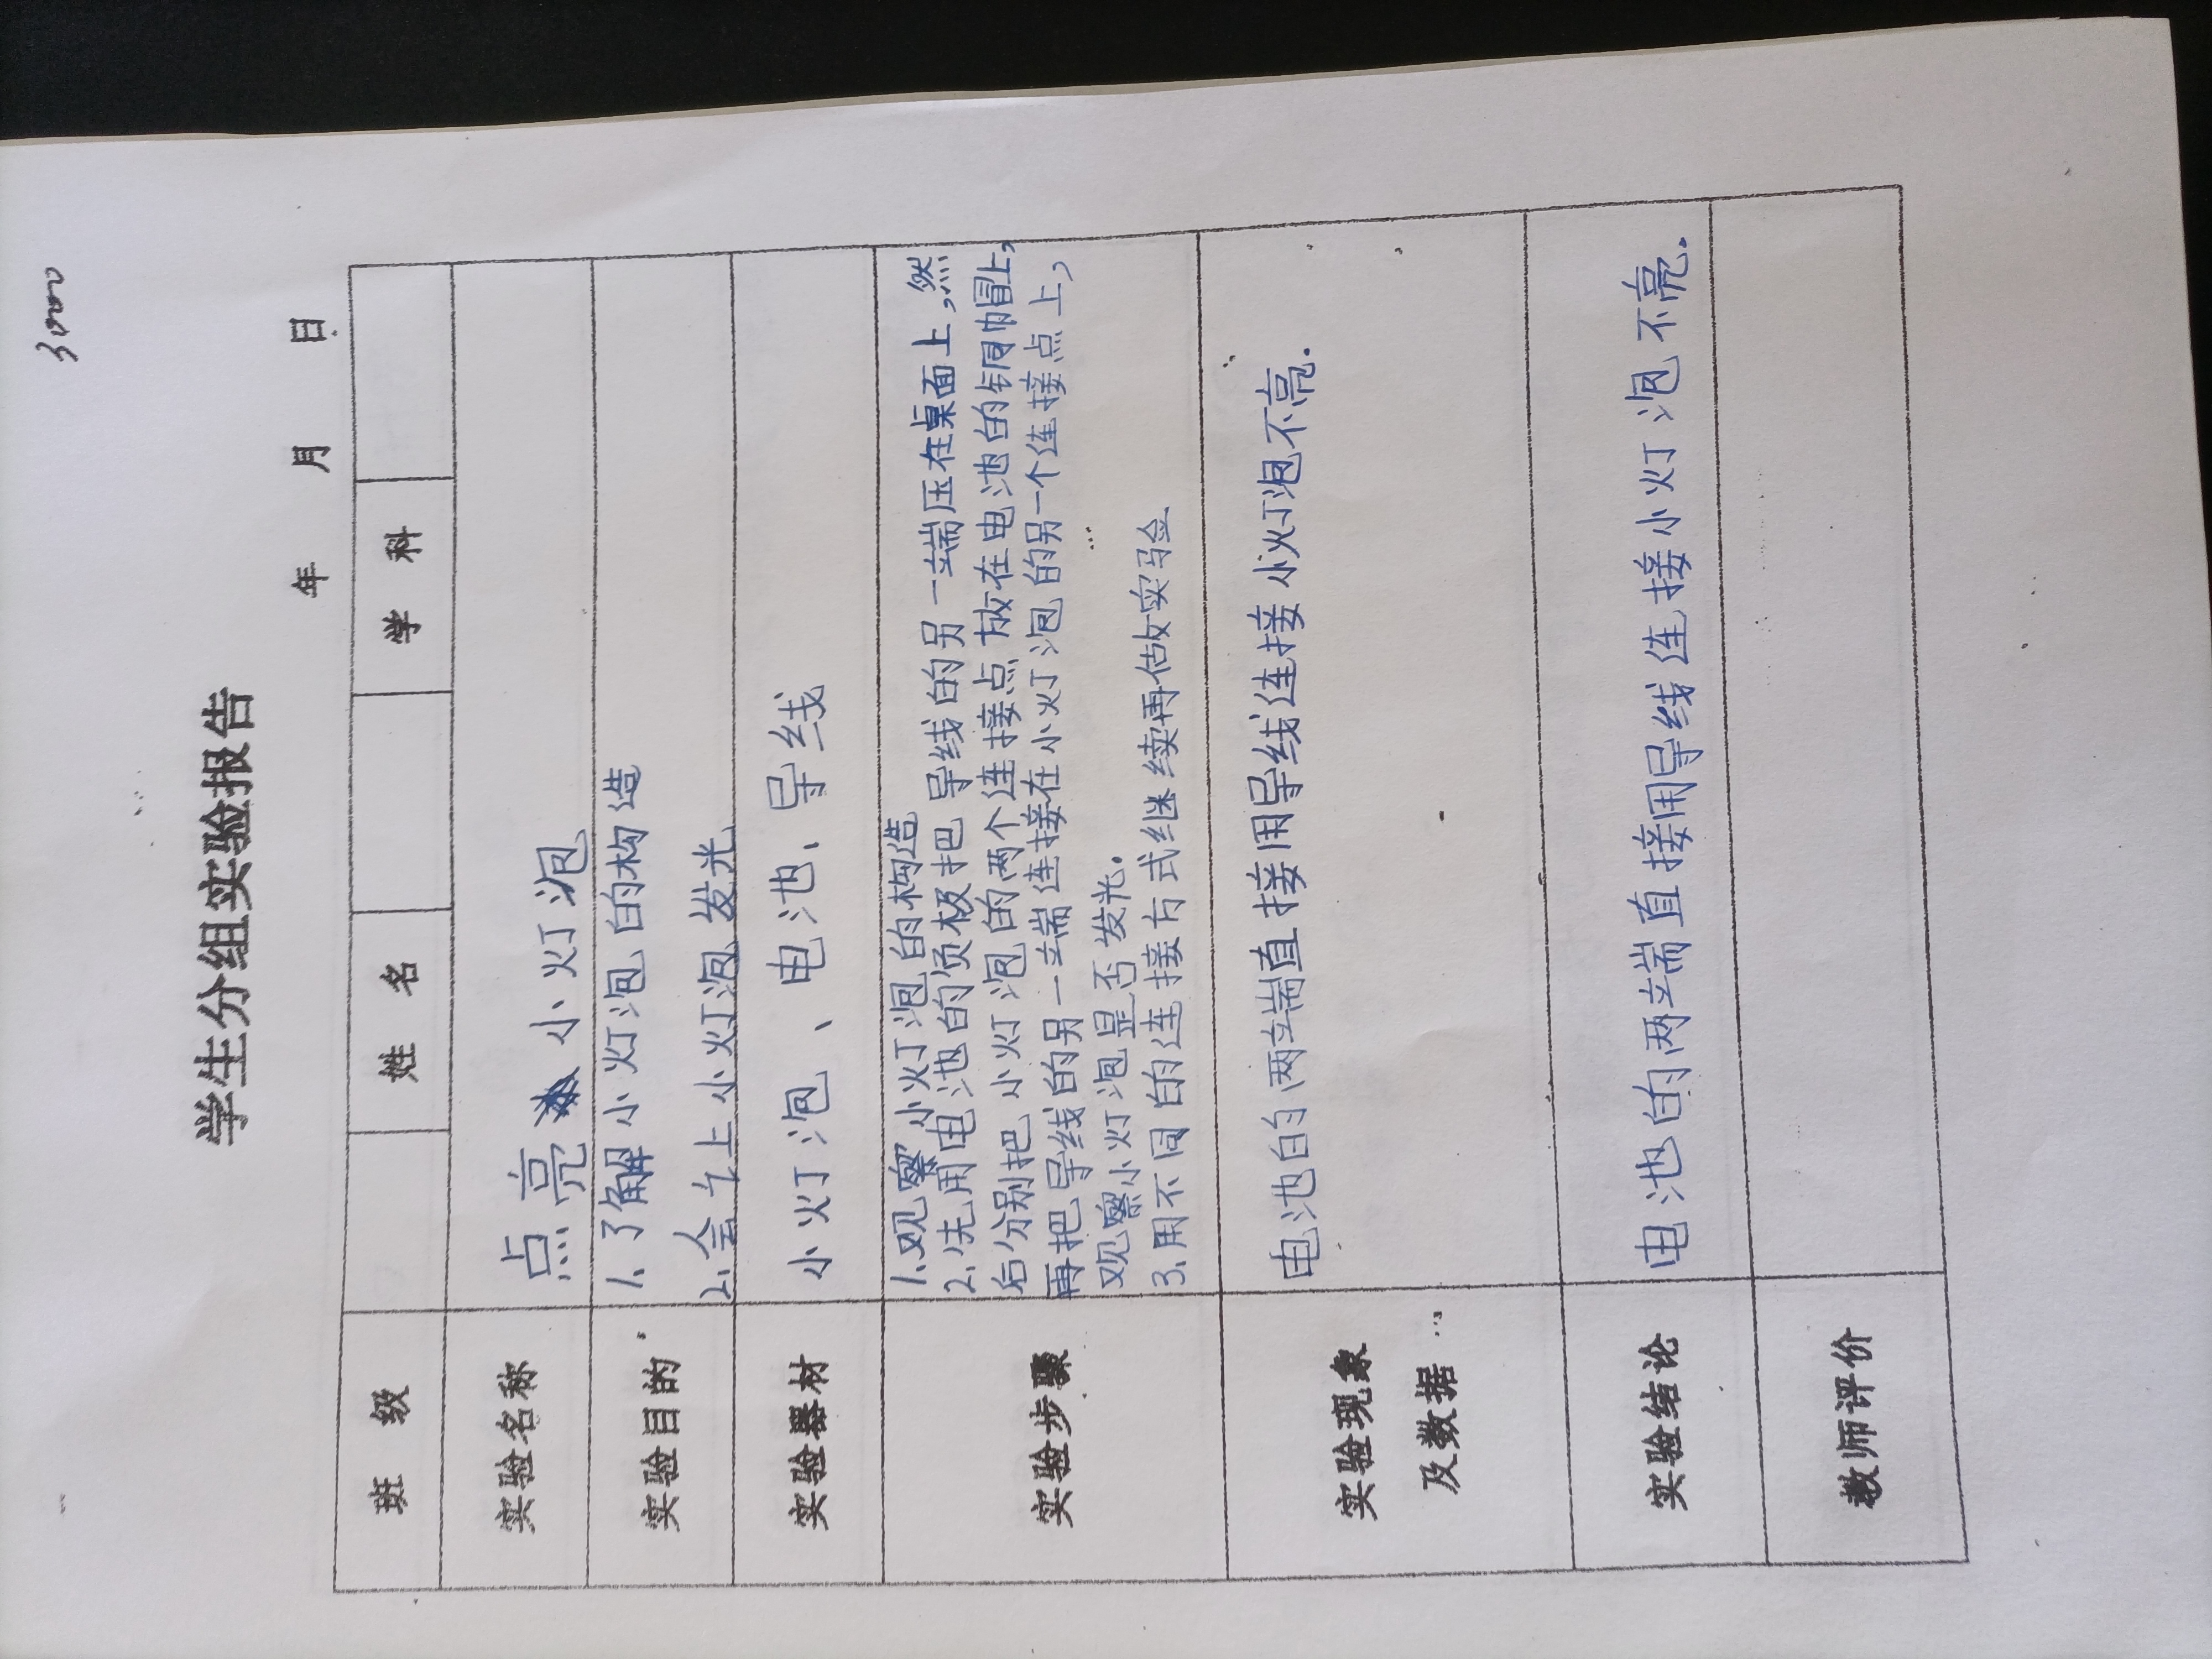 3000
学生分组实验报告
年 月 日
班 级 姓 名 学 科
实验名称 点亮 小灯泡
实验目的 1.了解小灯泡的构造
2.会让小灯泡发光
实验器材 小灯泡、电池、导线
实验步骤 1.观察小灯泡的构造
2.先用电池的负极把导线的另一端压在桌面上,然
后分别把小灯泡的两个连接点放在电池的铜帽上,
再把导线的另一端连接在小灯泡的另一个连接点上,
观察小灯泡是否发光.
3.用不同的连接方式继续再做实验
实验现象
及数据 电池的两端直接用导线连接小灯泡不亮.
实验结论 电池的两端直接用导线连接小灯泡不亮.
教师评价